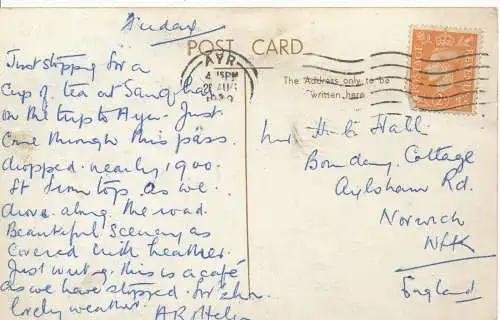 Friday
POST CARD
AYR
4.15PM
AUG
The Address only to be
written here
Just stopping for a
cup of tea at Sanquhar
on the trip to Ayr. Just
came through this pass
dropped nearly 1900
ft from top as we
drove along the road.
Beautiful scenery as
covered with heather.
Just writing this in a café
as we have stopped for
lovely weather.
H. G. Hall
Boundary Cottage
Aylsham Rd.
Norwich
Nfk
England